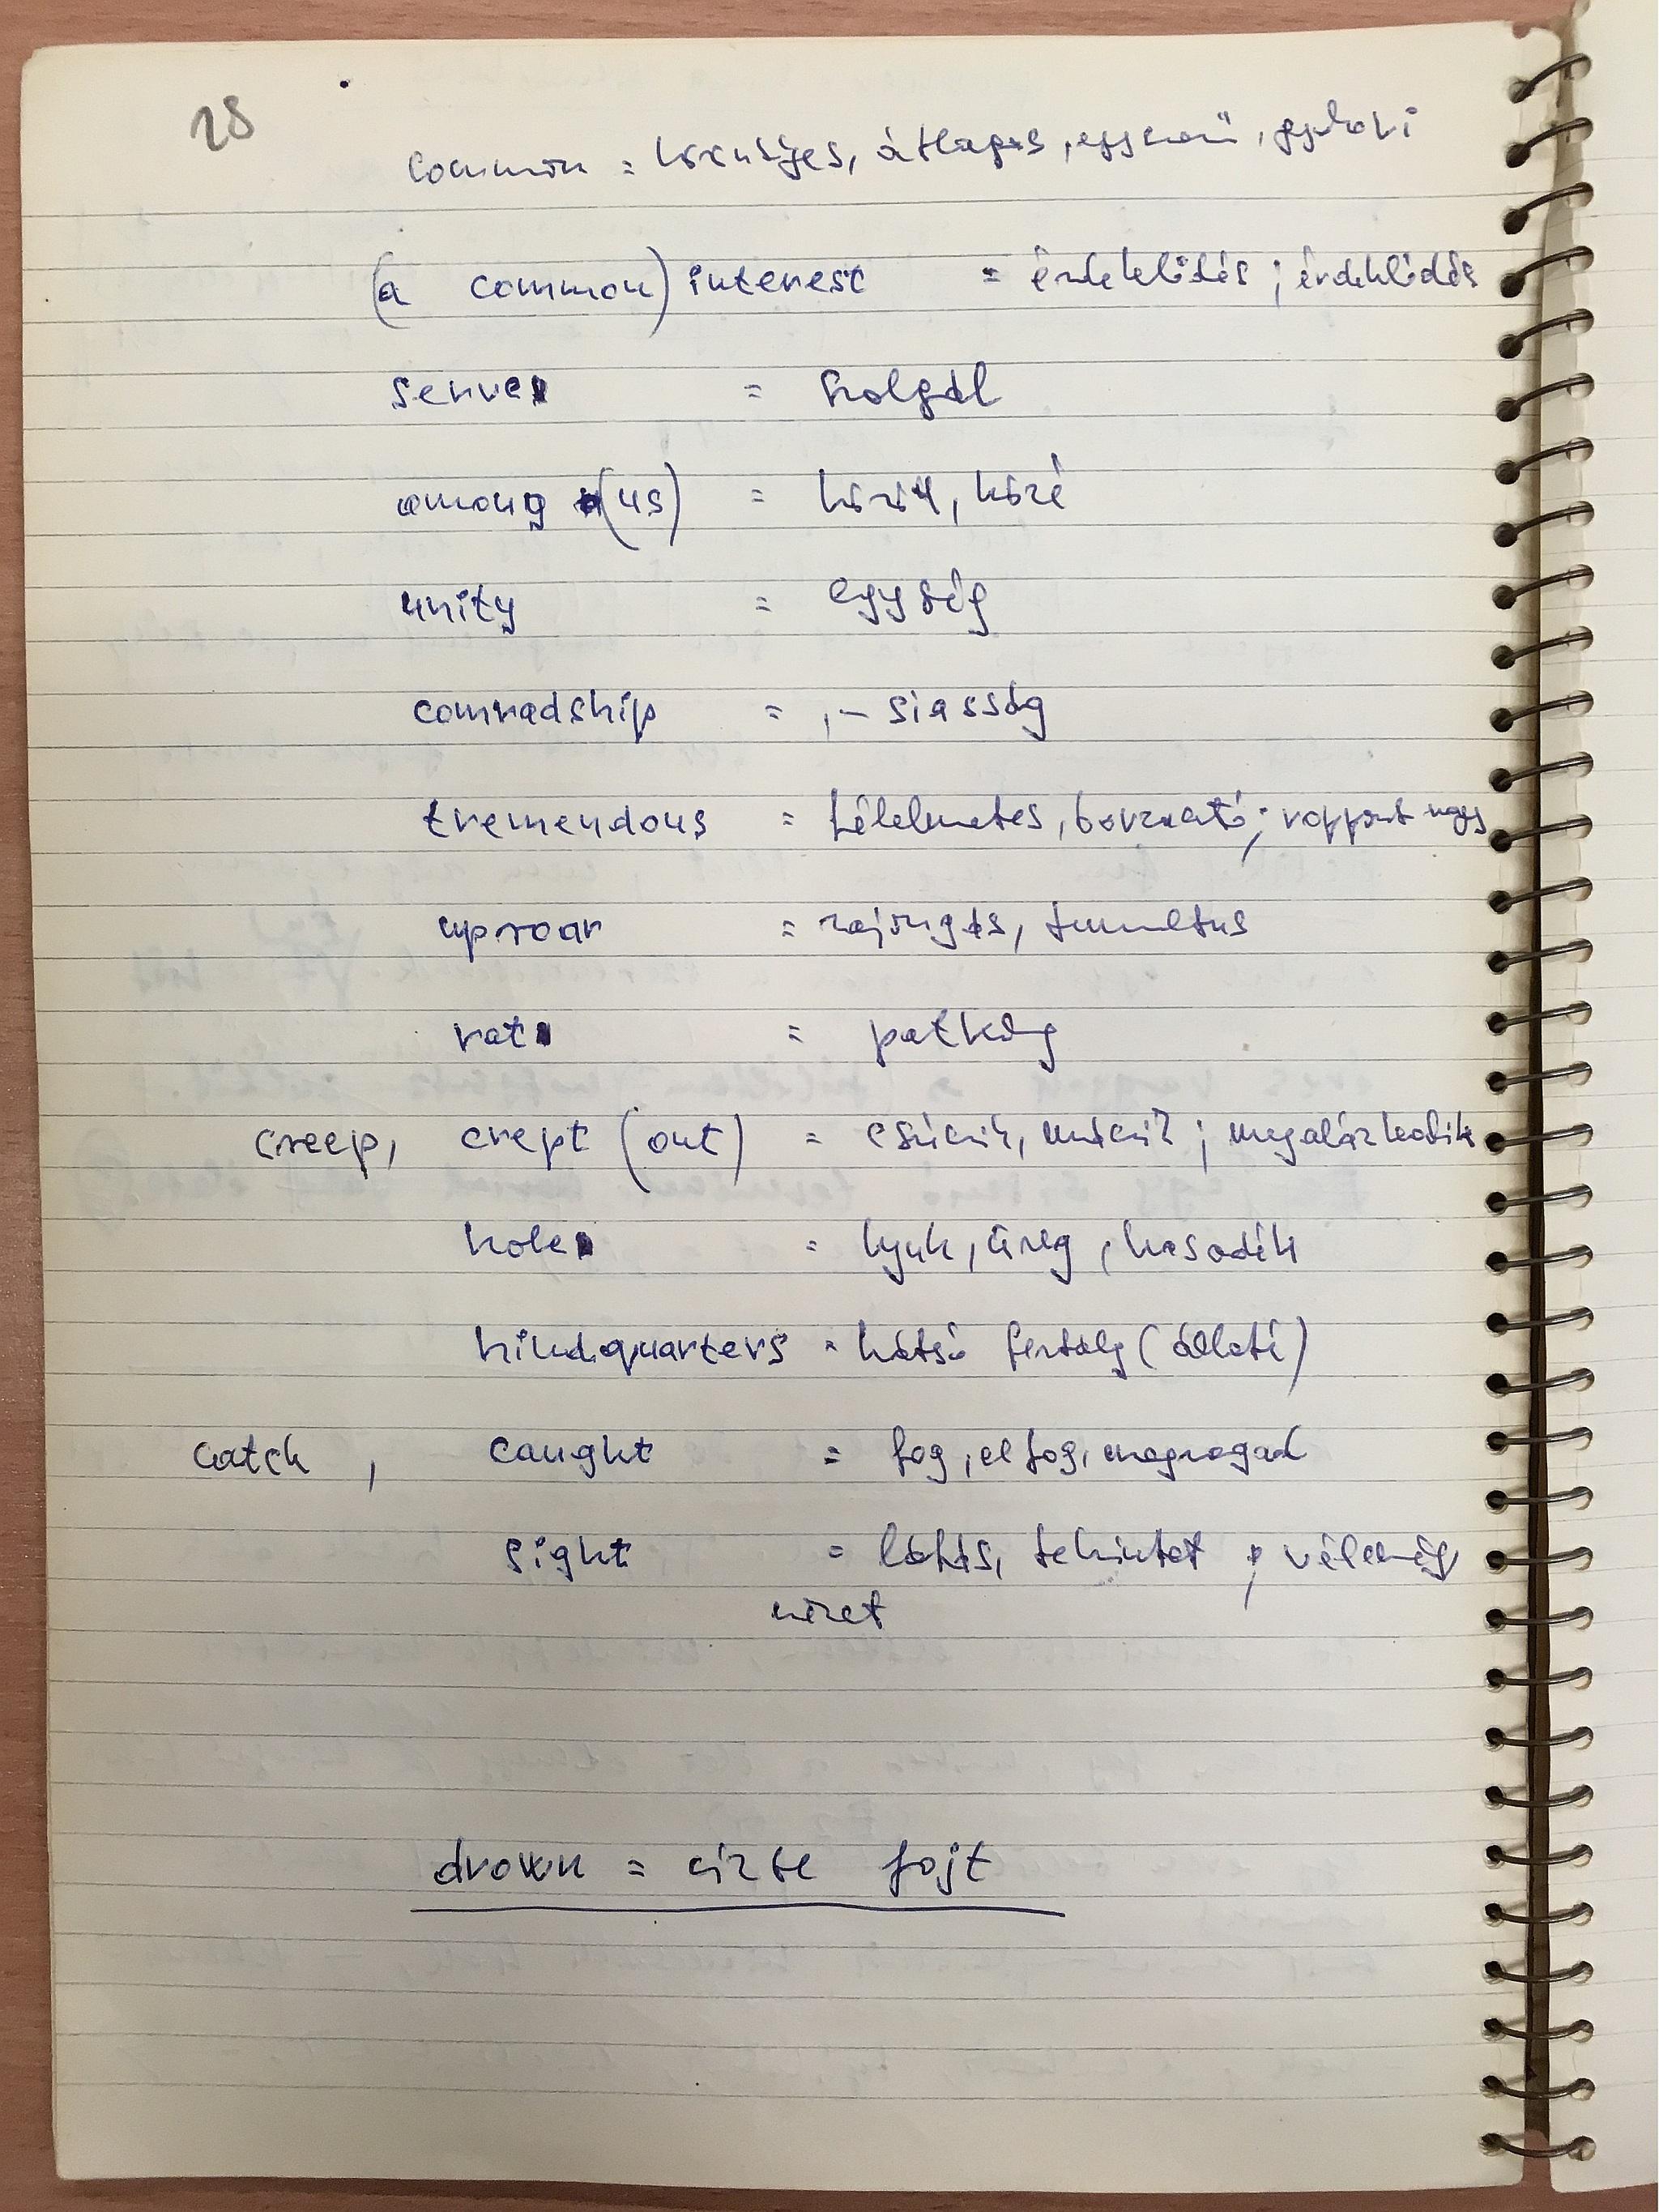 28
common = közönséges, átlagos, egyszerű, gyakori
(a common) interest = érdeklődés ; érdeklődés
serve = szolgál
among (us) = között, közé
unity = egység
comradship = , - siasság
tremendous = félelmetes, borzasztó ; roppant nagy
uproar = zajongás, tumultus
rat = patkány
creep, crept (out) = csúszik, mászik ; megalázkodik
hole = lyuk, üreg, hasadék
hindquarters = hátsó fertály (állati)
catch , caught = fog, elfog, megragad
sight = látás, tekintet ; vélemény
nézet
drown = vízbe fojt